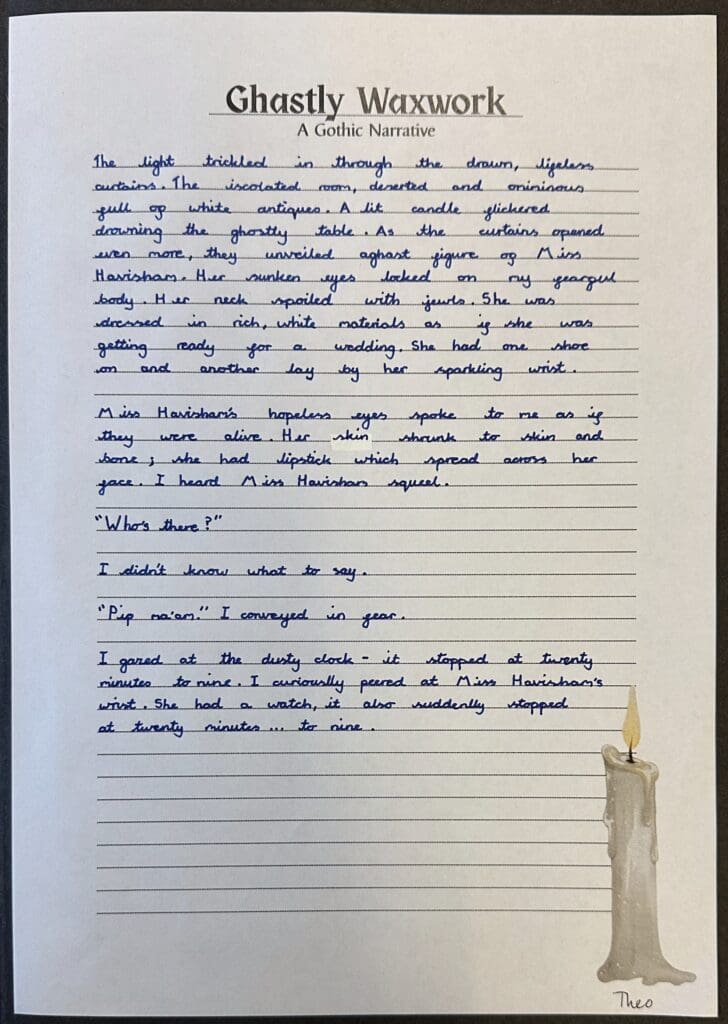 Ghastly Waxwork
A Gothic Narrative
The light trickled in through the drawn, lifeless
curtains. The iscolated room, deserted and onininous
full of white antiques. A lit candle flickered
drowning the ghostly table. As the curtains opened
even more, they unveiled aghast figure of Miss
Havisham. Her sunken eyes locked on my fearful
body. Her neck spoiled with jewls. She was
dressed in rich, white materials as if she was
getting ready for a wedding. She had one shoe
on and another lay by her sparkling wrist.
Miss Havisham's hopeless eyes spoke to me as if
they were alive. Her skin shrunk to skin and
bone; she had lipstick which spread across her
face. I heard Miss Havisham squeel.
"Who's there?"
I didn't know what to say.
"Pip ma'am." I conveyed in fear.
I gazed at the dusty clock - it stopped at twenty
minutes to nine. I curioušlly peered at Miss Havisham's
wrist. She had a watch, it also suddenlly stopped
at twenty minutes... to nine.
Theo